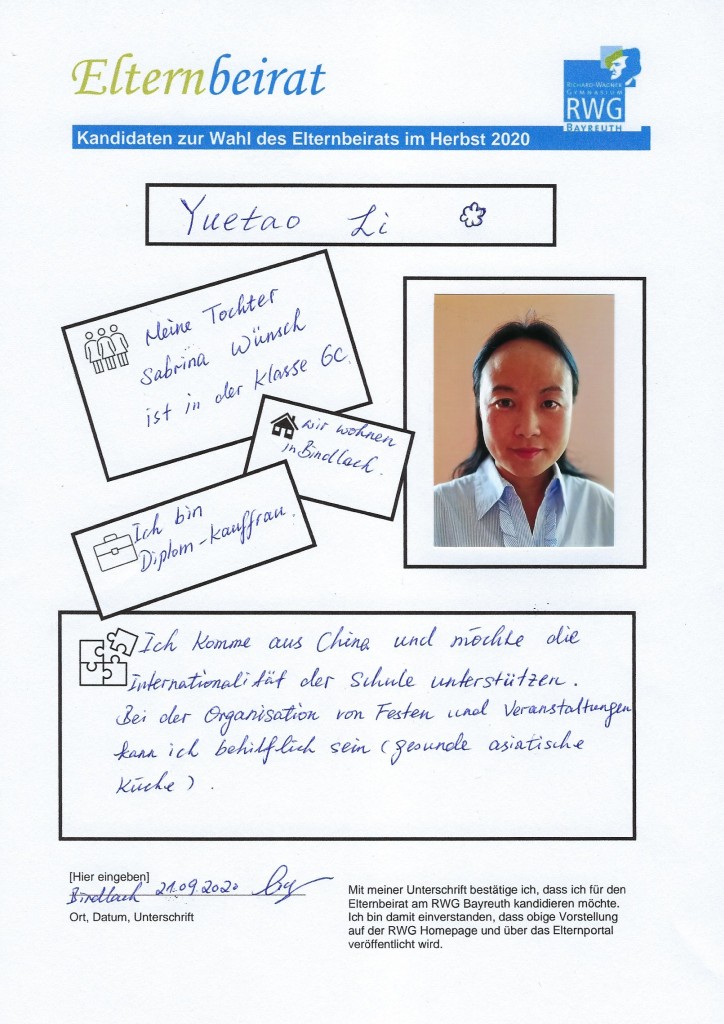 Elternbeirat
RICHARD-WAGNER
GYMNASIUM
RWG
BAYREUTH
Kandidaten zur Wahl des Elternbeirats im Herbst 2020
Yuetao Li
Meine Tochter
Sabrina Wünsch
ist in der Klasse 6C.
wir wohnen
in Bindlach.
Ich bin
Diplom-Kauffrau.
Ich komme aus China und möchte die
Internationalität der Schule unterstützen.
Bei der Organisation von Festen und Veranstaltungen
kann ich behilflich sein (gesunde asiatische
Küche).
[Hier eingeben]
Bindlach 21.09.2020
Ort, Datum, Unterschrift
Mit meiner Unterschrift bestätige ich, dass ich für den
Elternbeirat am RWG Bayreuth kandidieren möchte.
Ich bin damit einverstanden, dass obige Vorstellung
auf der RWG Homepage und über das Elternportal
veröffentlicht wird.